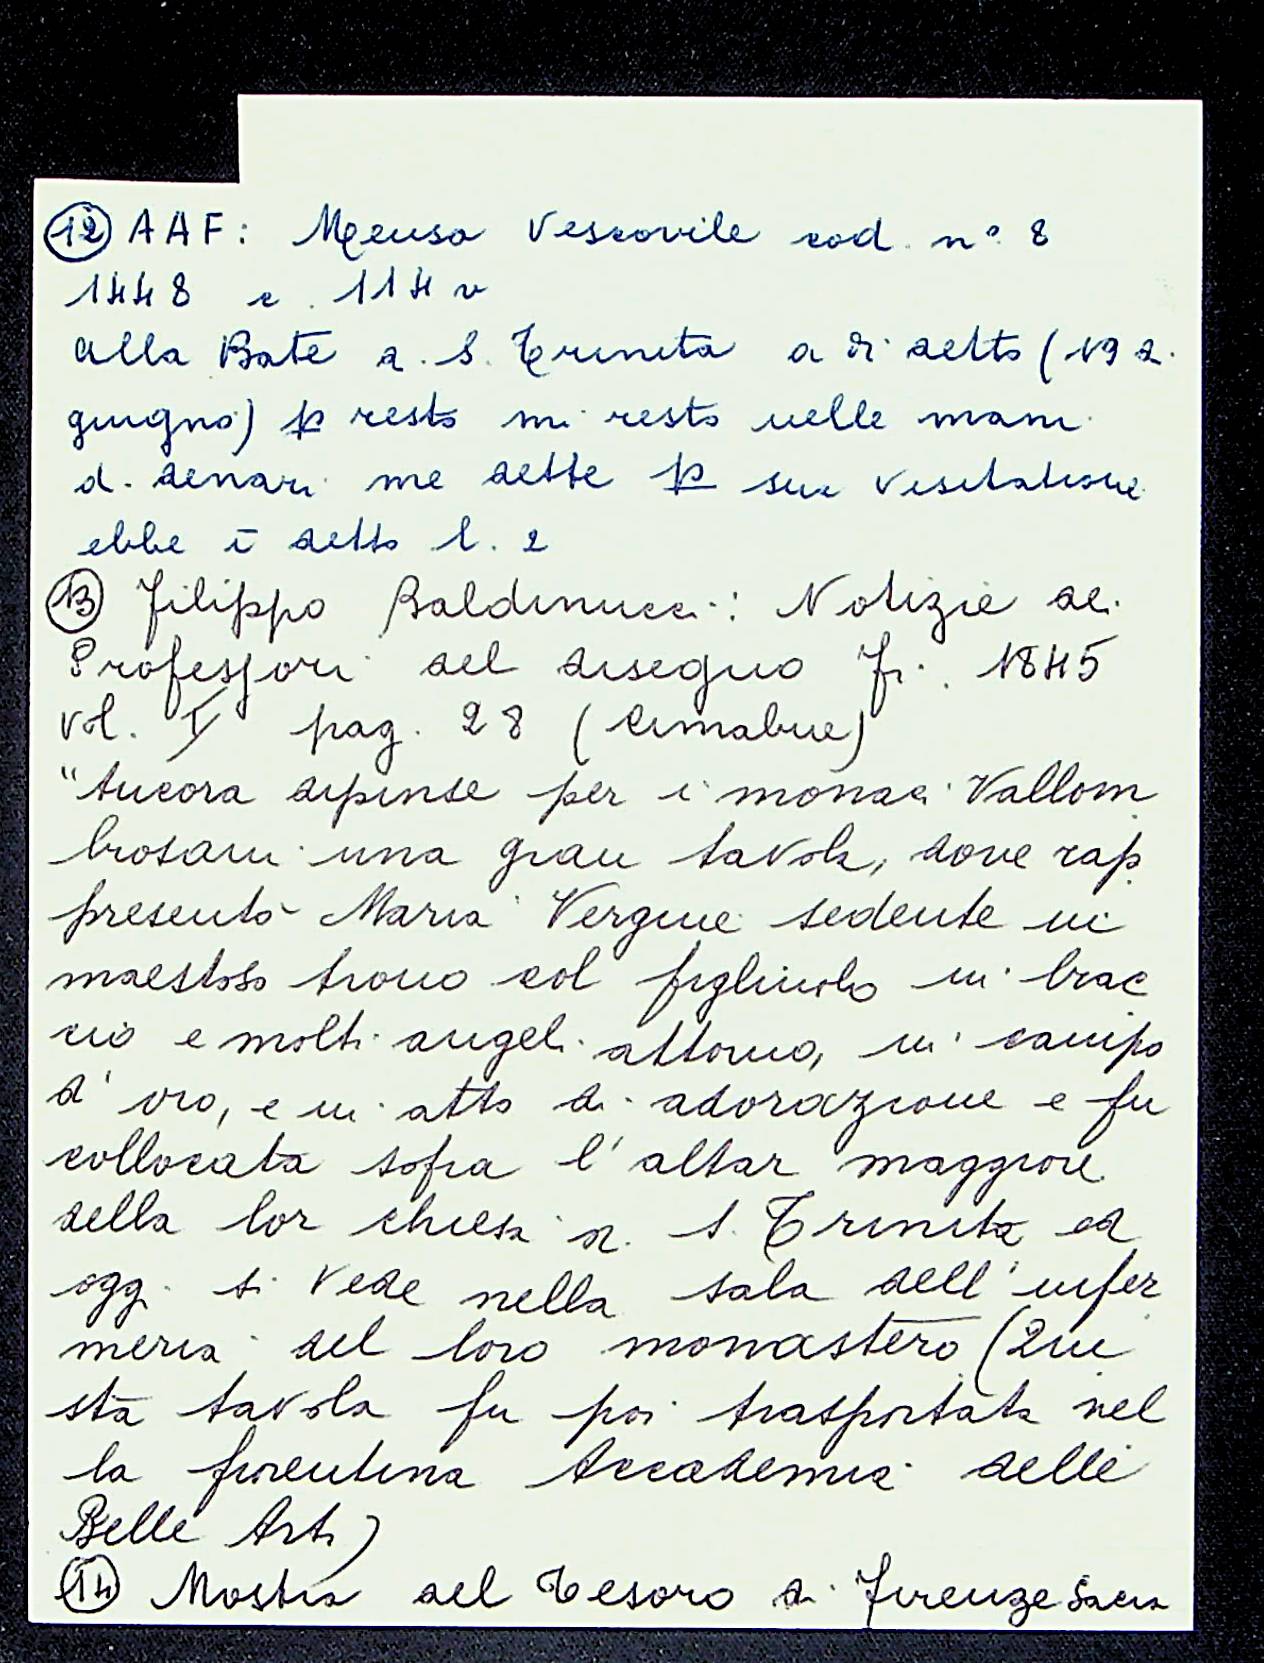 (12) AAF: Mensa Vescovile cod. n° 8
1448 c. 114 v
Alla Bate d. S. Trinita a dì detto (19 d.
giugno) p resto mi resto nelle mani
d. denari me dette p sua visitatione
ebbe ī detto l. 2
(13) Filippo Baldinucci: Notizie dei
Professori del disegno Fi. 1845
vol. I pag. 28 (Cimabue)
"Ancora dipinse per i monaci Vallom
brosani una gran tavola, dove rap
presentò Maria Vergine sedente in
maestoso trono col figliuolo in brac
cio e molti angeli attorno, in campo
d'oro, e in atto di adorazione e fu
collocata sopra l'altar maggiore
della lor chiesa di S. Trinita ed
oggi si vede nella sala dell'infer
meria del loro monastero (Que
sta tavola fu poi trasportata nel
la fiorentina Accademia delle
Belle Arti)
(14) Mostra del Tesoro di Firenze Sacra